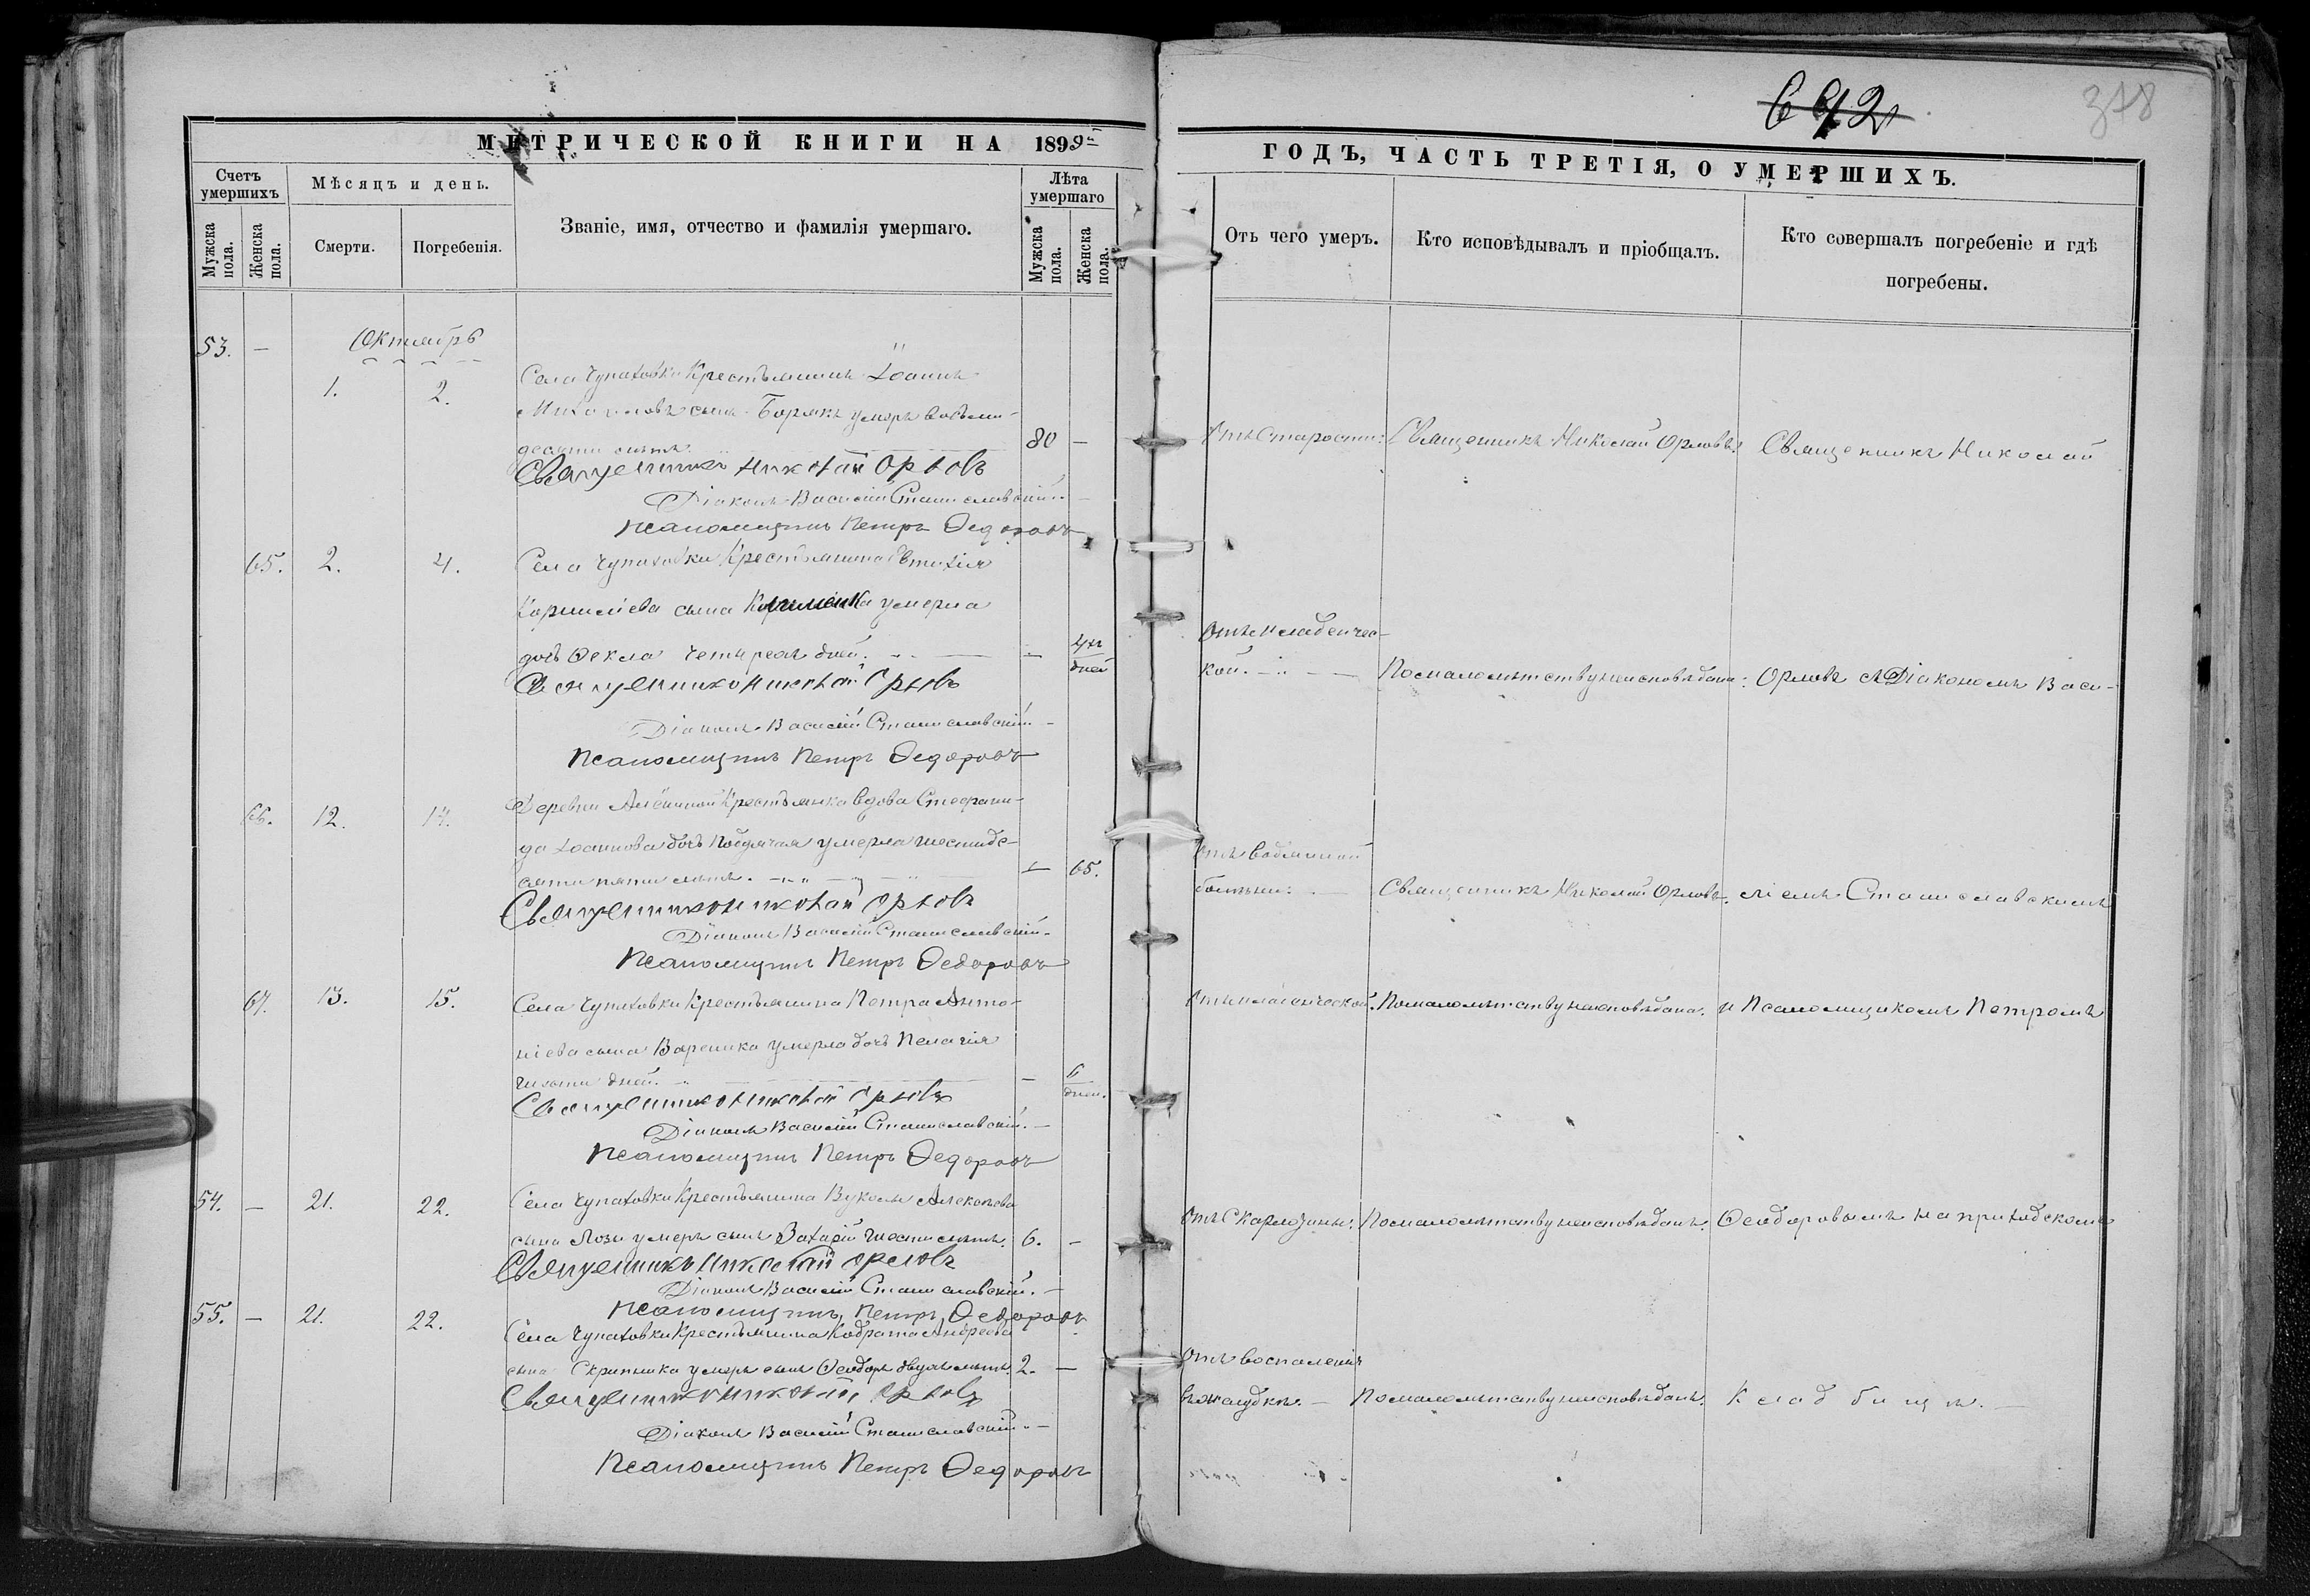 692
378
МЕТРИЧЕСКОЙ КНИГИ НА 1899й
ГОДЪ, ЧАСТЬ ТРЕТІЯ, О УМЕРШИХЪ.
Счетъ умершихъ
Мужска пола.
Женска пола.
Мѣсяцъ и день.
Смерти.
Погребенія.
Званіе, имя, отчество и фамилія умершаго.
Лѣта умершаго
Мужска пола.
Женска пола.
Отъ чего умеръ.
Кто исповѣдывалъ и пріобщалъ.
Кто совершалъ погребеніе и гдѣ
погребены.
Октябрь
53. — 1. 2.
Села Чупаховки Крестьянинъ Іоаннъ
Михаиловъ сынъ Борякъ умеръ восьми-
десяти лѣтъ. 80 —
Отъ Старости: Священникъ Николай Орловъ. Священникъ Николай
Священникъ Николай Орловъ
Діаконъ Василій Станиславскій.
Псаломщикъ Петръ Ѳедоровъ
65. 2. 4. Села Чупаховки Крестьянина Евтихія
Корнилієва сына умерла
дочь Ѳекла четырехъ дней. — 4хъ дней
Отъ младенчес-
кой. — Помалолѣтствунеисповѣдана: Орловъ съ Діакономъ Васи-
Священникъ Николай Орловъ
Діаконъ Василій Станиславскій
Псаломщикъ Петръ Ѳедоровъ
66. 12. 14. Деревни Крестьянка вдова Стефани-
да Іоаннова дочь умерла шестиде-
сяти пяти лѣтъ. — 65.
Отъ водянной
болѣзни: — Священникъ Николай Орловъ. ліемъ Станиславскимъ
Священникъ Николай Орловъ
Діаконъ Василій Станиславскій.
Псаломщикъ Петръ Ѳедоровъ
67. 13. 15. Села Чупаховки Крестьянина Петра Анто-
ніева сына Вареника умерла дочь Пелагія
шести дней. — 6 дней.
Отъ младенческой. Помалолѣтствунеисповѣдана. и Псаломщикомъ Петромъ
Священникъ Николай Орловъ
Діаконъ Василій Станиславскій. —
Псаломщикъ Петръ Ѳедоровъ
54. — 21. 22. Села Чупаховки Крестьянина Вукола Алексѣева
сына Лозы умеръ сынъ Захарій шести лѣтъ. 6. —
Отъ Скарлотины: Помалолѣтствунеисповѣданъ. Ѳеодоровымъ на приходскомъ
Священникъ Николай Орловъ
Діаконъ Василій Станиславскій. —
Псаломщикъ Петръ Ѳедоровъ
55. — 21. 22. Села Чупаховки Крестьянина Кодрата Андреева
сына Скрипника умеръ сынъ Ѳеодоръ двухъ лѣтъ. 2. —
Отъ воспаленія
въ желудкѣ. — Помалолѣтствунеисповѣданъ. Кладбищѣ. —
Священникъ Николай Орловъ
Діаконъ Василій Станиславскій —
Псаломщикъ Петръ Ѳедоровъ